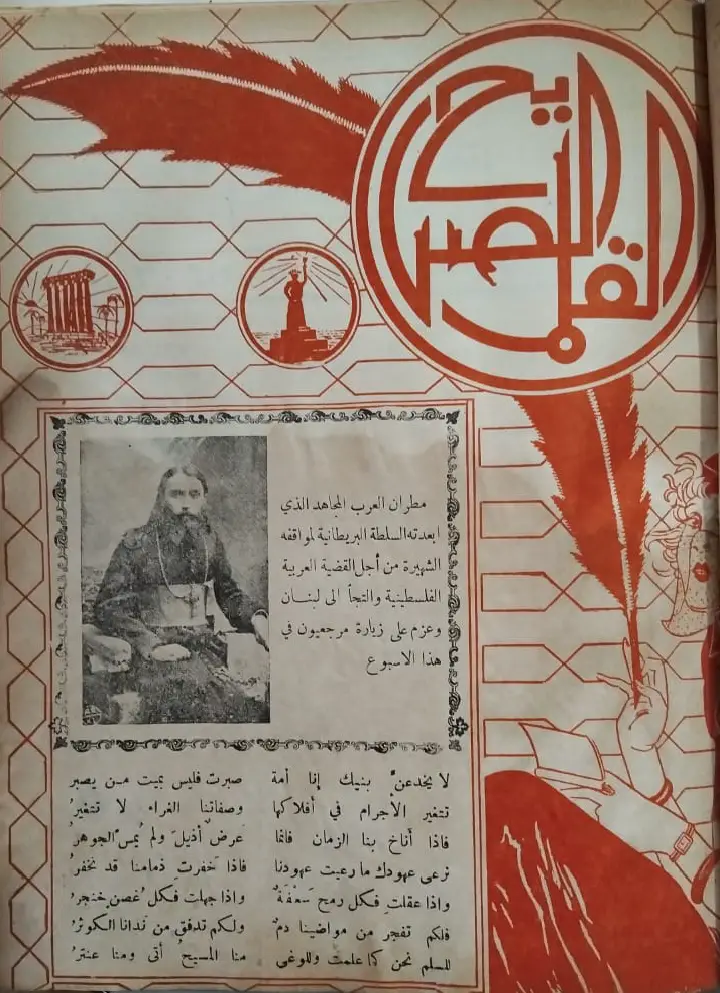 القلم الصريح
مطران العرب المجاهد الذي
ابعدته السلطة البريطانية لمواقفه
الشهيرة من أجل القضية العربية
الفلسطينية والتجأ الى لبنان
وعزم على زيارة مرجعيون في
هذا الاسبوع
لا يخدعنّ بنيك إنا أمة صبرت فليس بميت من يصبر
تتغير الأجرام في أفلاكها وصفاتنا الغراء لا تتغيرُ
فاذا أناخ بنا الزمان فانما عرضٌ أذيل ولم يُمس الجوهرُ
نرعى عهودك ما رعيت عهودنا فاذا خفرت ذمامنا قد نخفرُ
واذا عقلت فكل رمح سَعْفَةٌ واذا جهلت فكل غصن خنجرُ
فلكم تفجر من مواضينا دمٌ ولكم تدفق من ندانا الكوثرُ
للسلم نحن كما علمت وللوغى منا المسيحُ أتى ومنا عنترُ